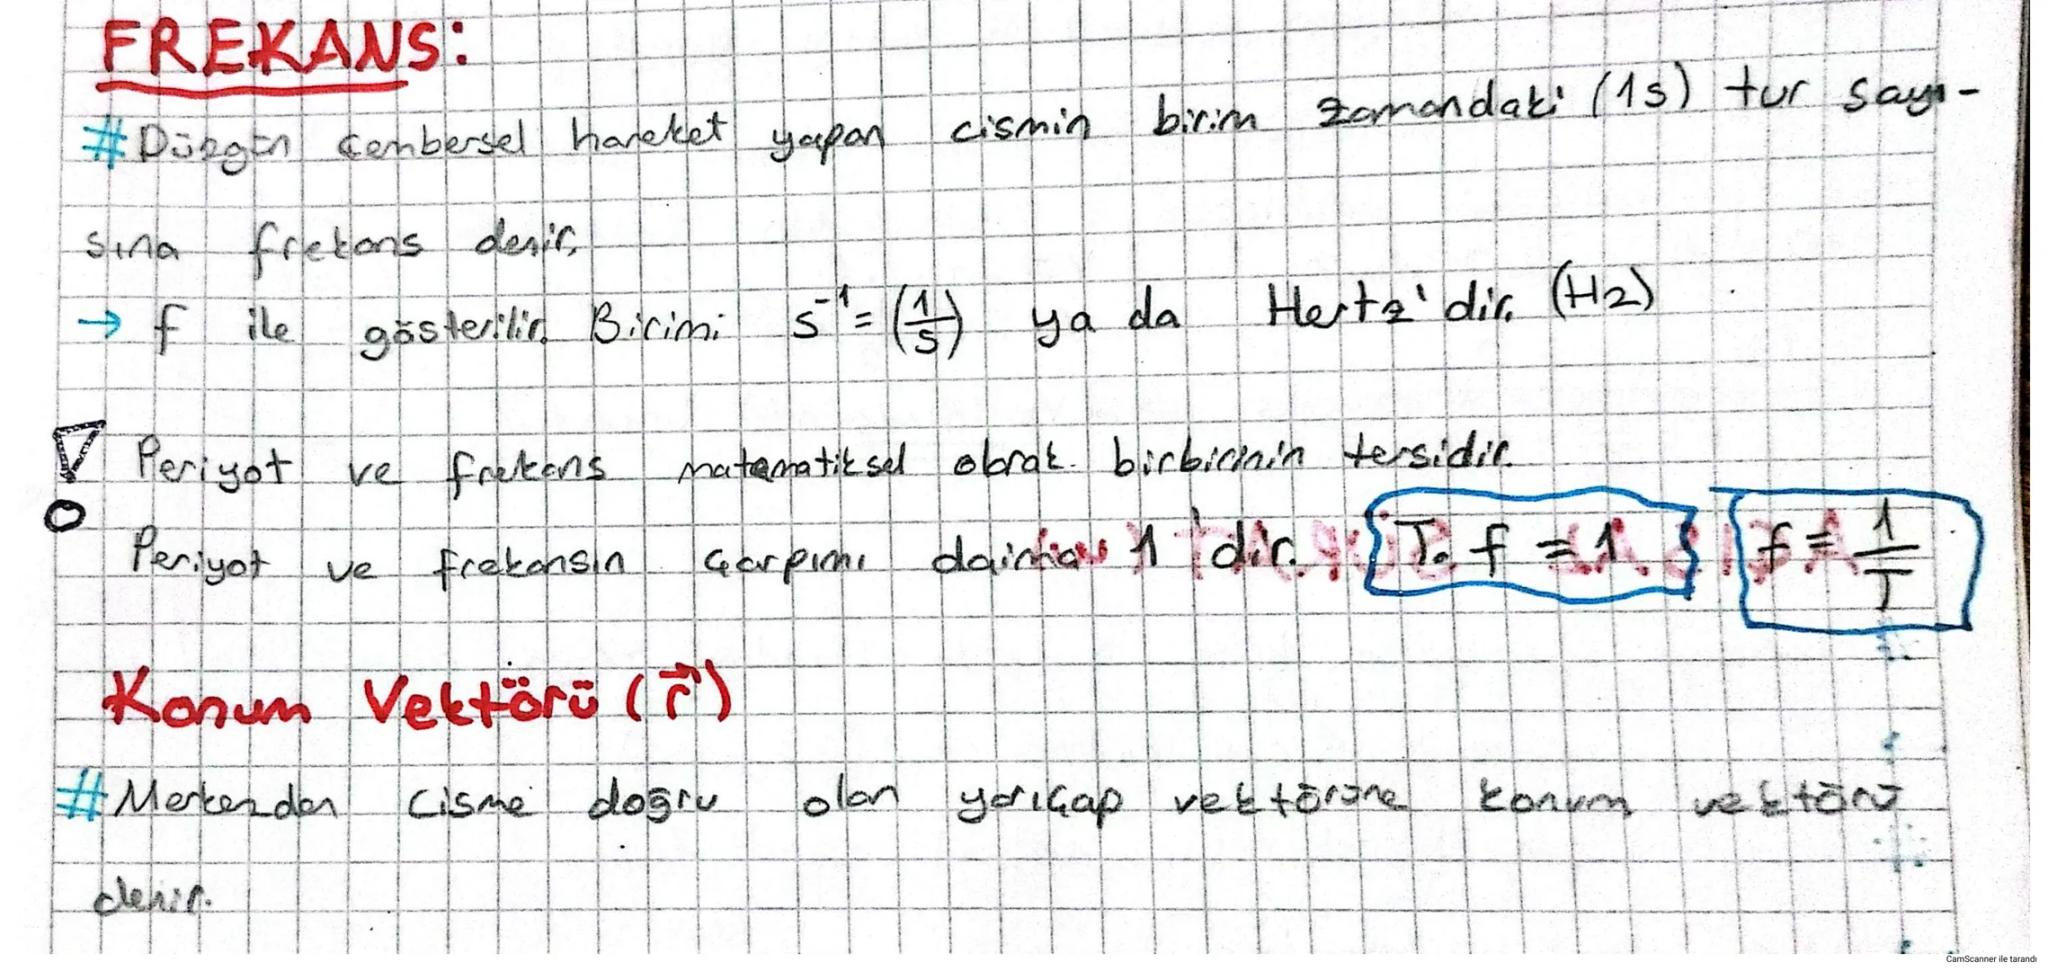 FREKANS:
# Düzgün çembersel hareket yapan cismin birim zamandaki (1s) tur sayı-
sına frekans denir.
→ f ile gösterilir. Birimi s⁻¹ = (1/s) ya da Hertz'dir. (Hz)
! Periyot ve frekans matematiksel olarak birbirinin tersidir.
Periyot ve frekansın çarpımı daima 1'dir. T. f = 1 f = 1/T
Konum Vektörü (r⃗)
# Merkezden cisme doğru olan yarıçap vektörüne konum vektörü
denir.
CamScanner ile tarandı